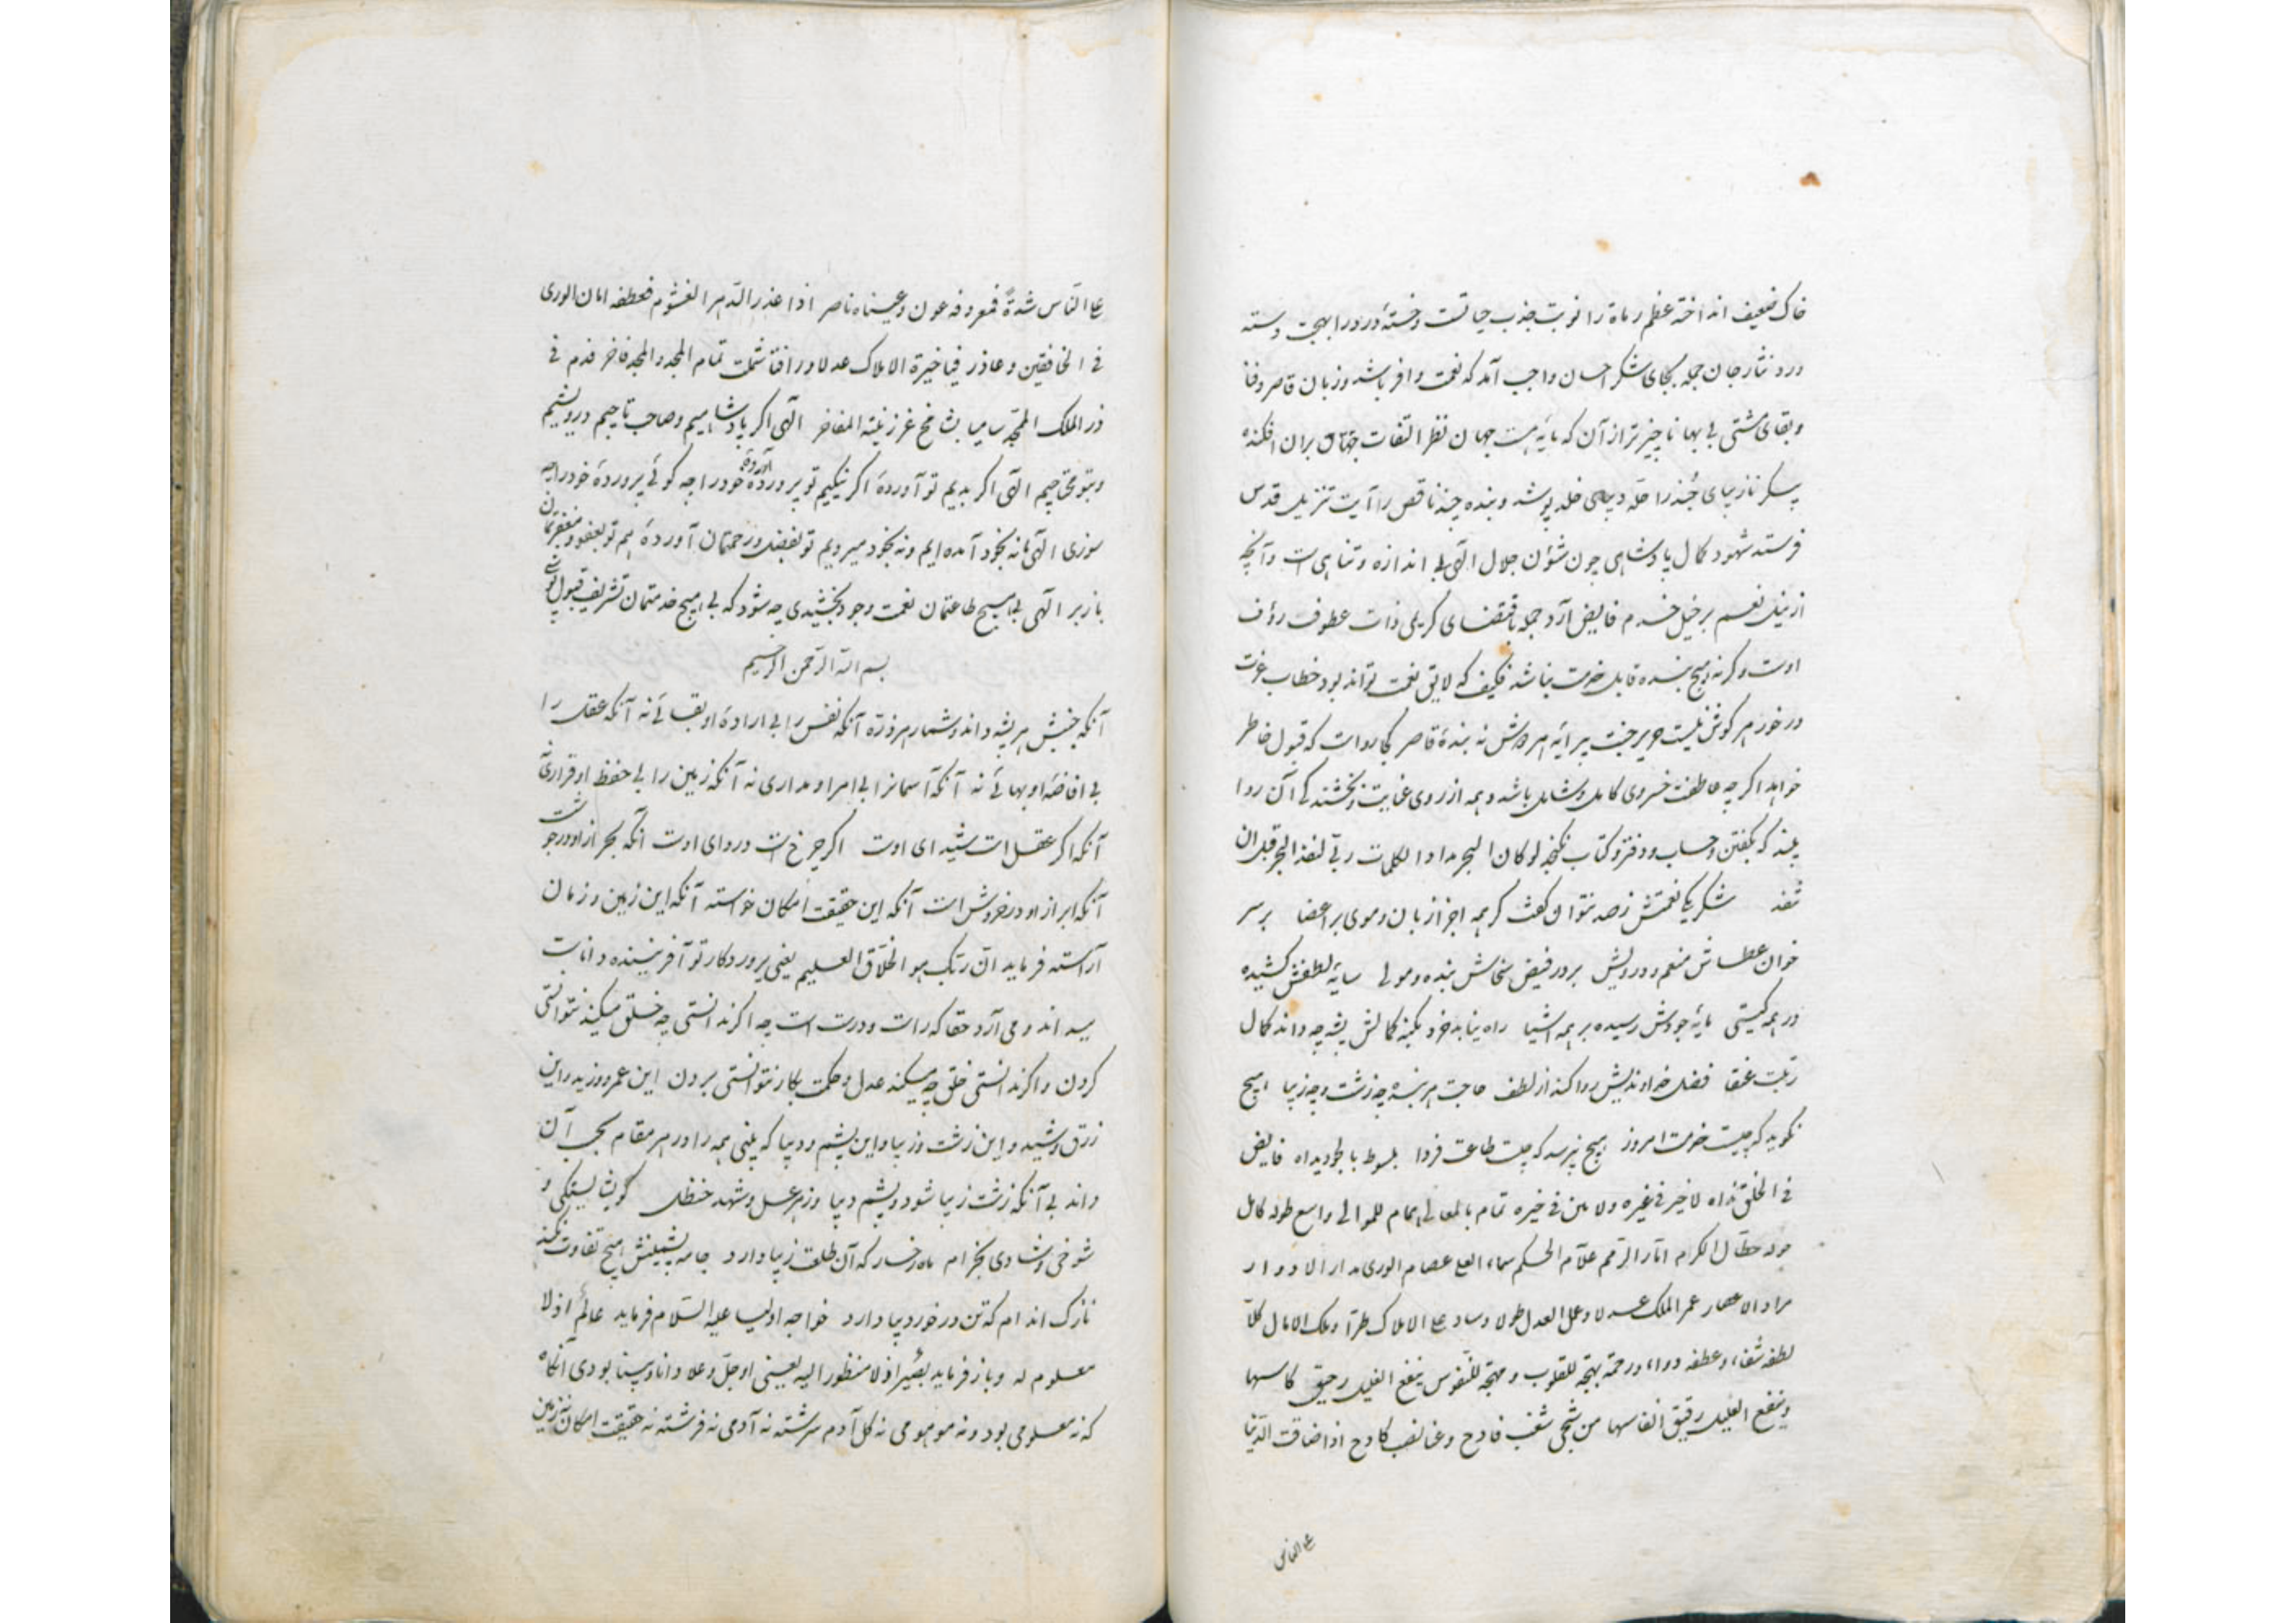 خاک ضعیف انداخته عظم رماة را نوبت جذب حیاتست وخستهٔ درد را بهجت وسته
درد نثار جان جمله بجای شکر احسان واجب آمد که نعمت وافر باشد وزبان قاصر وفنا
وبقای مشتی بی بها ناچیزتر از آن که بایدهمت جهان نظر التفات بران افکنده
پیکر نازیبای را حلهٔ دیبای خلد پوشد وبنده چند ناقص را آیت تنزیل قدس
فرستد شهود کمال پادشاهی چون شؤن جلال الهی بی اندازه وتناهی است وآنچه
از نیل نعم بر خیل خدم فایض آرد جمله باقتضای کریمی ذات عطوف رؤف
اوست وگرنه هیچ بنده قابل خدمت نباشد فکیف که لایق نعمت تواند بود خطاب عزت
درخور هر گوش نیست حریر جنت پیرایه هر دوش نه بندهٔ قاصر کجا رواست که قبول خاطر
خواهد اگر چه عاطفت خسروی کامل وشامل باشد وهمه از روی عنایت وبخشندگی آن روا
بیند که بگفتن وحساب ودفتر وکتاب نگنجد لو کان البحر مدادا لکلمات ربی لنفد البحر قبل ان
تنفد شکر یک نعمتش زصد نتوان گفت گر همه اجزا زبان وموی بر اعضا بر سر
خوان عطاش منعم ودرویش بر در فیض سخاش بنده ومولی سایهٔ لطفش کشیده
در همه گیتی مایهٔ جودش رسیده بر همه اشیا راه نیابد خرد بکنه کمالش پشه چه داند کمال
رتبت عنقا فضل خداوندیش روا کند از لطف حاجت هر بنده چه زشت وچه زیبا هیچ
نگوید که چیست خدمت امروز هیچ نپرسد که چیست طاعت فردا بسوط بالجود یداه فایض
فی الخلق نداه لا خیر فی غیره ولا مین فی خیره تمام بالمعالی همام للموالی واسع طوله کامل
حوله حطّال الکرم اثار الرقم علّام الحکم سماء العلی عصام الوری مدار الادوار
مراد الاعصار عمر الملک عدلا وعلی العدل طولا وساد علی الاملاک طرّا وملک الامال کلّا
لطفه شفاء وعطفه دواء ورحمة بهجة للقلوب ومهجة للنفوس ینفع الغلیل رحیق کاسها
وینفع العلیل رقیق انفاسها من شجی شغب فادح وعنا نصب کادح اذا ضاقت الدنیا
علی الناس
علی النّاس شدّةً فمعروفه عون وعیناه ناصر اذا غدر الدّهر الغشوم فعطفه امان الوری
فی الخافقین وعاذر فیا خیرة الاملاک عدلا ورافة شملت تمام المجد والمجد فاخر فدم فی
ذر الملک الممجّد سامیا بشامخ عز زینته المفاخر الهی اگر پادشاهیم وصاحب تاجیم درویشیم
وبتو محتاجیم الهی اگر بدیم تو آوردهٔ اگر نیکیم تو پروردهٔ آوردهٔ خود را چه گوئی پروردهٔ خود را چه
سوزی الهی ما نه بخود آمده ایم ونه بخود میرویم تو بفضل ورحمتمان آوردهٔ هم تو بعفو ومغفرتمان
باز بر الهی بی هیچ طاعتمان نعمت وجود بخشیدی چه شود که بی هیچ خدمتمان تشریف قبول پوشی
بسم الله الرحمن الرحیم
آنکه جنبش هر پشه داند وشمار هر ذرّه آنکه نفس را بی ارادهٔ او بقائی نه آنکه عقل را
بی افاضهٔ او بهائی نه آنکه آسمانرا بی امر او مداری نه آنکه زمین را بی حفظ او قراری
آنکه اگر عقل است شیدای اوست اگر چرخ است دروای اوست آنکه بحر از او در جوشست
آنکه ابر از او در خروش است آنکه این حقیقت امکان خواسته آنکه این زمین وزمان
آراسته فرماید انّ ربّک هو الخلّاق العلیم یعنی پروردگار تو آفریننده داناست
میداند ومی آرد حقا که راست ودرست است چه اگر ندانستی چه خلق میکند نتوانستی
کردن واگر ندانستی خلق چه میکند عدل وحکمت بکار نتوانستی بردن این عمرو وزید واین
زرق وشید واین زشت وزیبا واین پشم ودیبا که بینی همه را در هر مقام بجای آن
داند بی آنکه زشت زیبا شود وپشم دیبا وزهر عسل وشهد حنظل گو بشایستگی و
شوخی وشادی بخرام ماه رخسار که آن طلعت زیبا دارد جامه پشمینش هیچ تفاوت نکند
نازک اندام که تن در خور دیبا دارد خواجه اولیا علیه السّلام فرماید عالمٌ اذ لا
معلوم له وباز فرماید بصیر اذ لا منظور الیه یعنی او جلّ وعلا دانا وبینا بودی آنگاه
که نه معلومی بود ونه موهومی نه گل آدم سرشته نه آدمی نه فرشته نه حقیقت امکان نه زمین